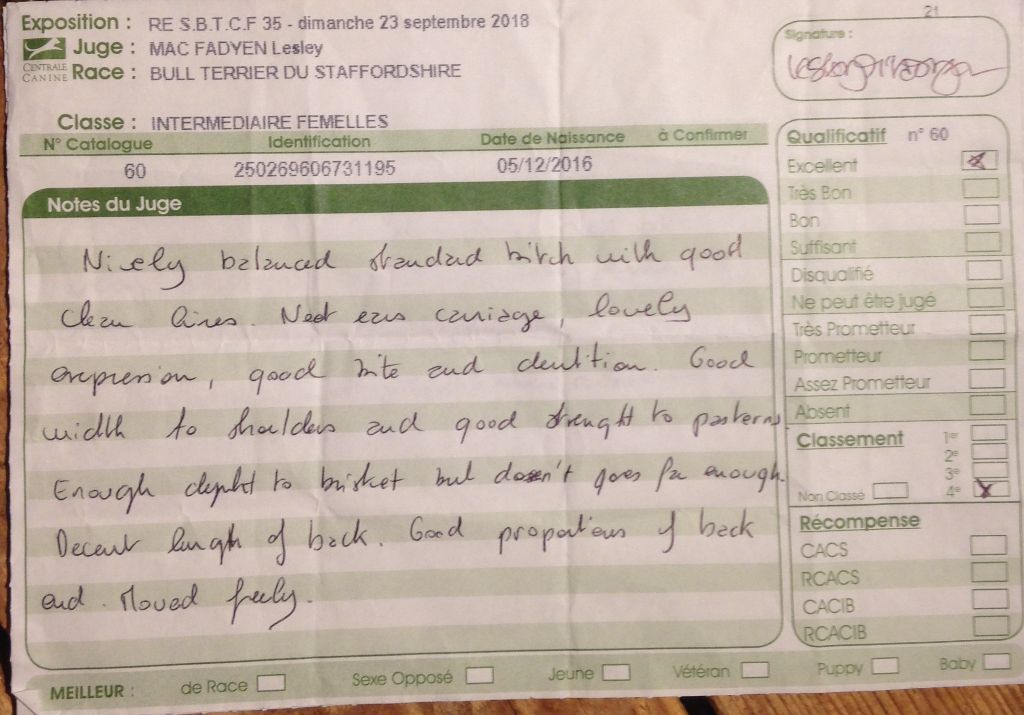 21
Exposition : RE S.B.T.C.F 35 - dimanche 23 septembre 2018
Juge : MAC FADYEN Lesley
CENTRALE CANINE
Race : BULL TERRIER DU STAFFORDSHIRE
Signature :
Classe : INTERMEDIAIRE FEMELLES
N° Catalogue Identification Date de Naissance à Confirmer
60 250269606731195 05/12/2016
Notes du Juge
Nicely balanced standard bitch with good
clean lines. Neat ears carriage, lovely
expression, good bite and dentition. Good
width to shoulders and good strenght to pasterns
Enough depht to brisket but doesn't goes far enough.
Decent lengh of back. Good proportions of back
end. Moved freely.
Qualificatif n° 60
Excellent X
Très Bon
Bon
Suffisant
Disqualifié
Ne peut être jugé
Très Prometteur
Prometteur
Assez Prometteur
Absent
Classement 1er
2e
3e
Non Classé 4e X
Récompense
CACS
RCACS
CACIB
RCACIB
MEILLEUR : de Race Sexe Opposé Jeune Vétéran Puppy Baby